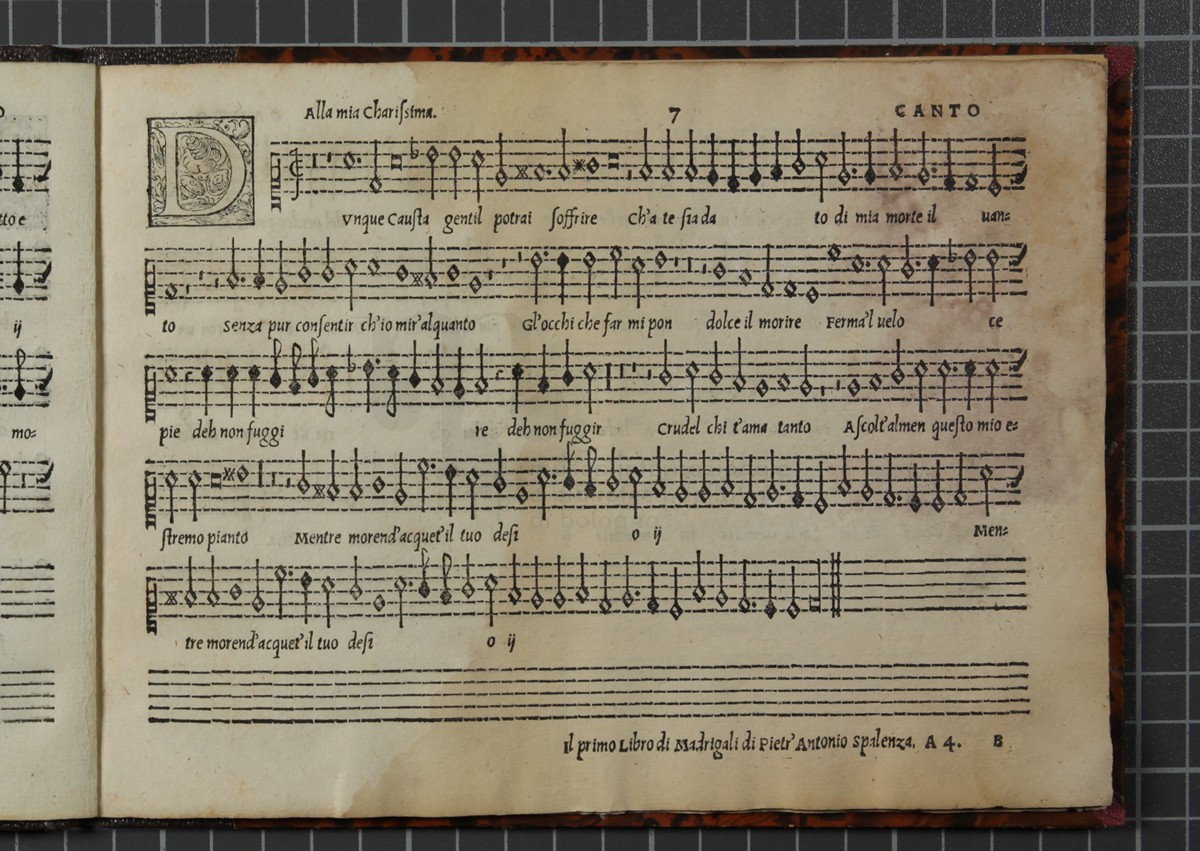 Alla mia Chariſsima. 7 CANTO
D Vnque Cauſta gentil potrai ſoffrire Ch'a te ſia da to di mia morte il uan=
to Senza pur conſentir ch'io mir'alquanto Gl'occhi che far mi pon dolce il morire Ferma'l uelo ce
pie deh non fuggi re deh non fuggir Crudel chi t'ama tanto Aſcolt'almen queſto mio e=
ſtremo pianto Mentre morend'acquet'il tuo deſi o ij Men=
tre morend'acquet'il tuo deſi o ij
Il primo Libro di Madrigali di Pietr'Antonio Spalenza, A 4. B
O
tto e
ij
mo=